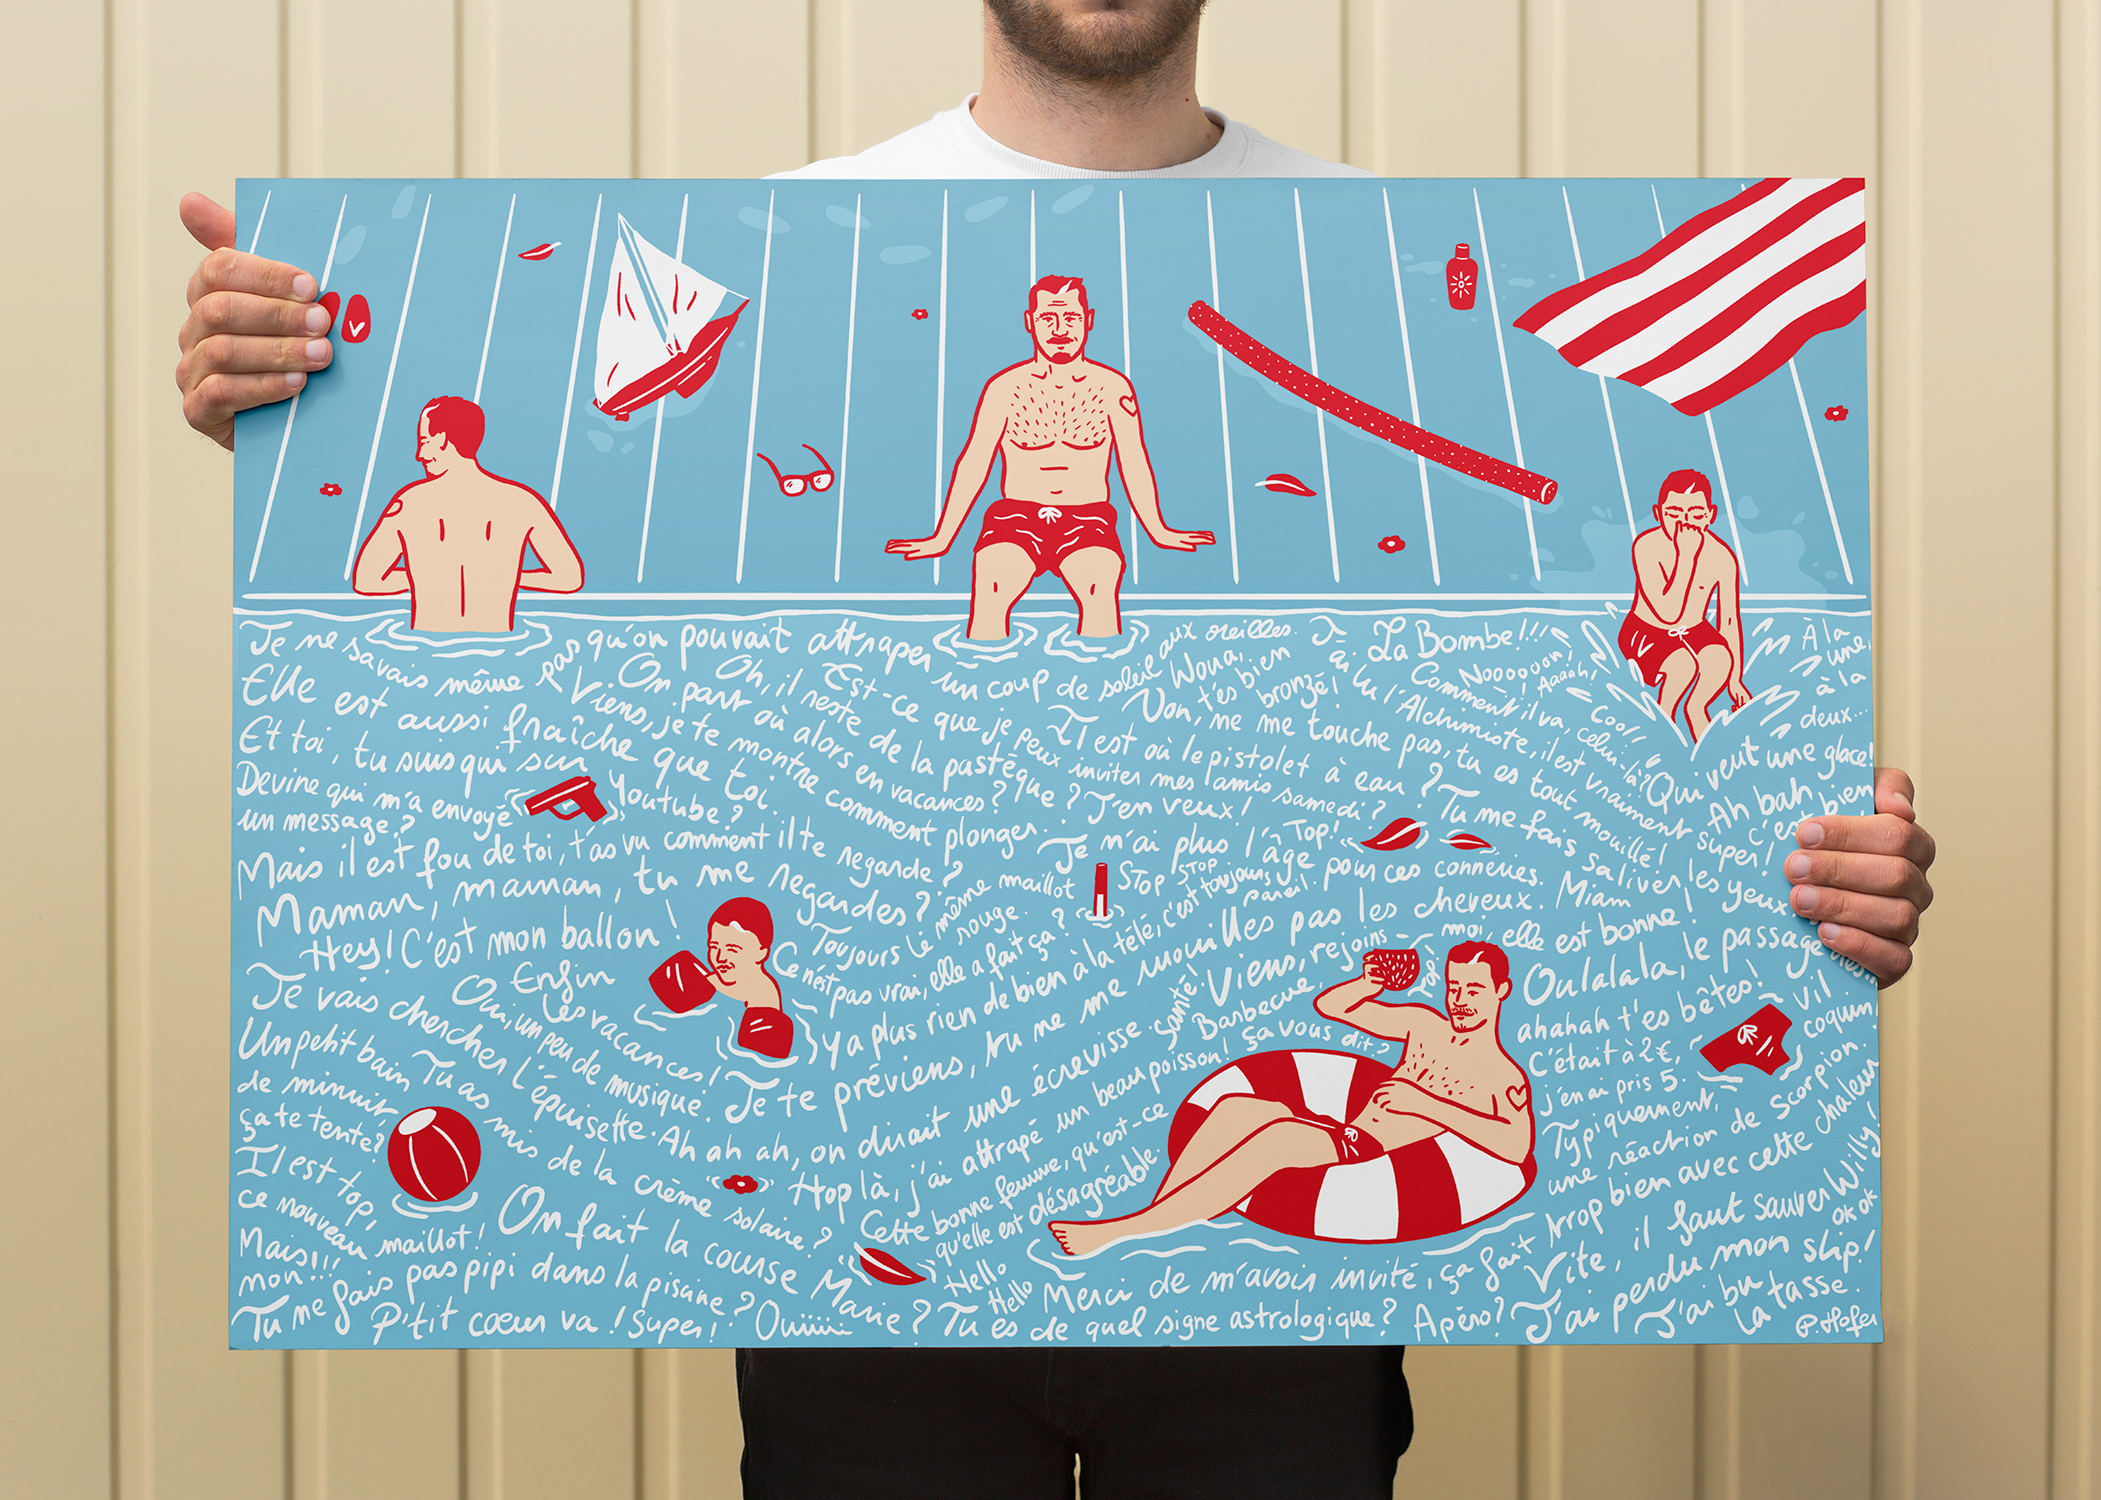 Je ne savais même pas qu'on pouvait attraper un coup de soleil aux oreilles.
Elle est aussi fraîche que toi.
Viens, je te montre comment plonger.
On part où alors en vacances?
Oh, il reste de la pastèque? J'en veux!
Est-ce que je peux inviter mes amis samedi?
Woua, t'es bien bronzé!
J'ai lu l'Alchimiste, il est vraiment super!
La Bombe!!!
Nooooon! Aaaah!
Comment il va, celui-là?
Cool!
À la une, à la deux...
Non, ne me touche pas, tu es tout mouillé!
Il est où le pistolet à eau?
Tu me fais saliver les yeux.
Qui veut une glace!
Ah bah c'est bien
Et toi, tu suis qui sur Youtube?
Devine qui m'a envoyé un message?
Mais il est fou de toi, t'as vu comment il te regarde?
Je n'ai plus l'âge pour ces conneries.
Top!
Maman, maman, tu me regardes?
Toujours le même maillot rouge.
STOP STOP
c'est toujours pareil.
Hey! C'est mon ballon!
Ce n'est pas vrai, elle a fait ça?
Y a plus rien de bien à la télé,
Je te préviens, tu ne me mouilles pas les cheveux.
Miam
Viens, rejoins-moi, elle est bonne!
Oulalala, le passage
Enfin les vacances!
Oui, un peu de musique.
Je vais chercher l'épuisette.
Ah ah ah, on dirait une écrevisse.
Santé!
Barbecue, ça vous dit?
Top!
ahahah t'es bêtes!
vil coquin.
C'était à 2€, j'en ai pris 5.
Un petit bain de minuit, ça te tente?
Tu as mis de la crème solaire?
Hop là, j'ai attrapé un beau poisson!
Typiquement, une réaction de scorpion.
Il est top, ce nouveau maillot!
Cette bonne femme, qu'est-ce qu'elle est désagréable.
On fait la course Marie?
Hello Hello
Merci de m'avoir invité, ça fait trop bien avec cette chaleur
Vite, il faut sauver Willy!
ok ok
Mais!!! non!!!
Tu me fais pas pipi dans la piscine?
P'tit cœur va! Super! Ouiiiii
Tu es de quel signe astrologique?
Apéro?
J'ai perdu mon slip!
J'ai bu la tasse.
P. Hofer